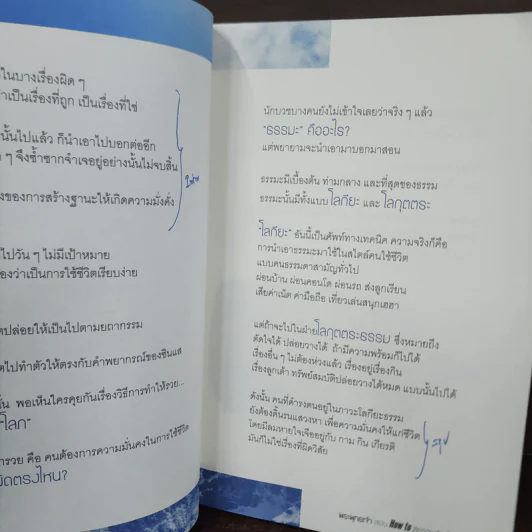 ในบางเรื่องผิด ๆ
าเป็นเรื่องที่ถูก เป็นเรื่องที่ใช่
นั้นไปแล้ว ก็นำเอาไปบอกต่ออีก
ๆ จึงซ้ำซากจำเจอยู่อย่างนั้นไม่จบสิ้น
งของการสร้างฐานะให้เกิดความมั่งคั่ง
ไปวัน ๆ ไม่มีเป้าหมาย
องว่าเป็นการใช้ชีวิตเรียบง่าย
ปล่อยให้เป็นไปตามยถากรรม
ตไปทำตัวให้ตรงกับคำพยากรณ์ของซินแส
พอเห็นใครคุยกันเรื่องวิธีการทำให้รวย...
โลก"
ารวย คือ คนต้องการความมั่นคงในการใช้ชีวิต
ผิดตรงไหน?
นักบวชบางคนยังไม่เข้าใจเลยว่าจริง ๆ แล้ว
"ธรรมะ" คืออะไร?
แต่พยายามจะนำเอามาบอกมาสอน
ธรรมะมีเบื้องต้น ท่ามกลาง และที่สุดของธรรม
ธรรมะนั้นมีทั้งแบบ โลกียะ และ โลกุตตระ
"โลกียะ" อันนี้เป็นศัพท์ทางเทคนิค ความจริงก็คือ
การนำเอาธรรมะมาใช้ในสไตล์คนใช้ชีวิต
แบบคนธรรมดาสามัญทั่วไป
ผ่อนบ้าน ผ่อนคอนโด ผ่อนรถ ส่งลูกเรียน
เสียค่าเน็ต ค่ามือถือ เที่ยวเล่นสนุกเฮฮา
แต่ถ้าจะไปในฝ่ายโลกุตตระธรรม ซึ่งหมายถึง
ตัดใจได้ ปล่อยวางได้ ถ้ามีความพร้อมก็ไปได้
เรื่องอื่น ๆ ไม่ต้องห่วงแล้ว เรื่องอยู่เรื่องกิน
เรื่องลูกเต้า ทรัพย์สมบัติปล่อยวางได้หมด แบบนั้นไปได้
ดังนั้น คนที่ดำรงตนอยู่ในภาวะโลกียะธรรม
ยังต้องดิ้นรนแสวงหา เพื่อความมั่นคงให้แก่ชีวิต
โดยมีลมหายใจเจืออยู่กับ กาม กิน เกียรติ
มันก็ไม่ใช่เรื่องที่ผิดวิสัย
How to